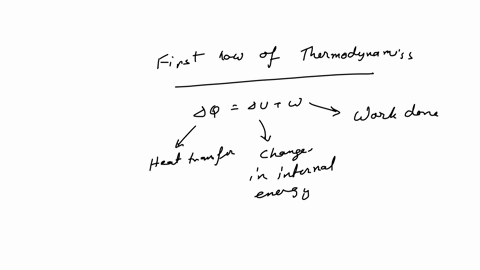 First law of Thermodynamics
ΔQ = ΔU + W
Work done
Heat transfer
Change
in internal
energy